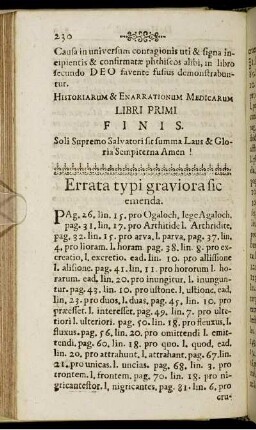 230
Causa in universum contagionis uti & signa in-
cipientis & confirmatæ phthiseos alibi, in libro
secundo DEO favente fusius demonstrabun-
tur.
HISTORIARUM & ENARRATIONUM MEDICARUM
LIBRI PRIMI
FINIS.
Soli Supremo Salvatori sit summa Laus & Glo-
ria Sempiterna Amen!
Errata typi graviora sic
emenda.
PAg. 26. lin. 15. pro Ogaloch, lege Agaloch.
pag. 31, lin, 17. pro Arthitide l. Arthridite,
pag. 32. lin. 15. pro arva, l. parva, pag. 37. lin,
4. pro lioram. l. horam pag. 38. lin. 8. pro ex-
creatio, l. excretio. ead. lin. 10. pro allissione
l. alisione. pag. 41. lin, 11. pro hororum l. ho-
rarum. ead. lin, 20. pro inungitur. l. inungun-
tur. pag. 43. lin. 10. pro ustone. l. ustione, ead.
lin, 23. pro duos, l. duas, pag. 45. lin. 10. pro
præesset. l. interesset, pag. 49. lin. 7. pro ulte-
riori l. ulteriori. pag. 50. lin. 18. pro fluxut, l.
fluxus. pag. 56, lin. 20. pro emittendi l. emit-
tendi, pag. 60. lin. 18. pro quo. l. quod, ead.
lin. 20. pro attrahunt, l. attrahant, pag. 67. lin.
21. pro unicas. l. uncias. pag. 68. lin. 3. pro
trontem. l. frontem. pag. 70. lin. 18. pro ni-
gricantestor, l, nigricantes, pag. 81. lin. 6, pro
cru-